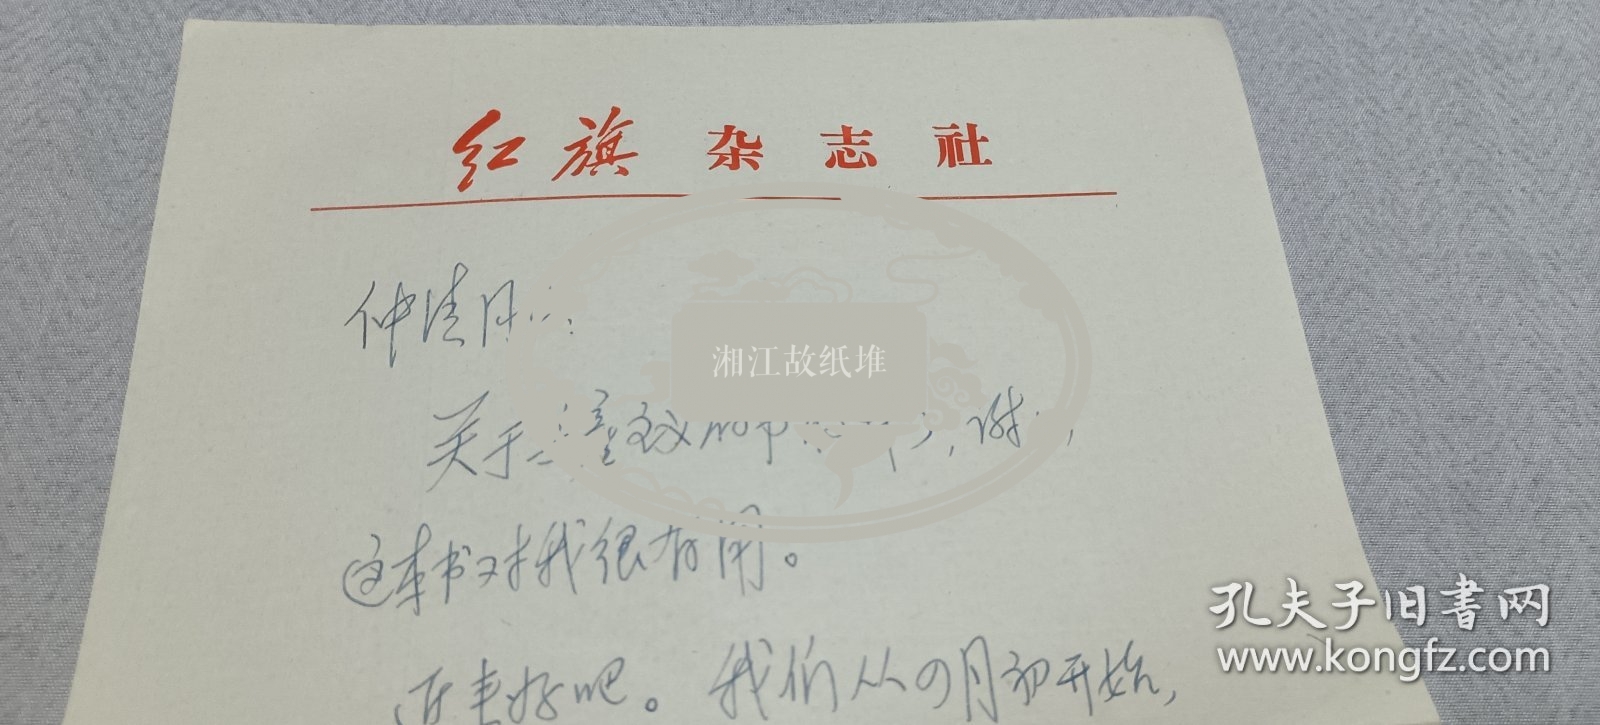 红旗杂志社
仲清同
湘江故纸堆
关于
这本书对我很有用。
近来好吧。我们从4月初开始，
孔夫子旧书网
www.kongfz.com